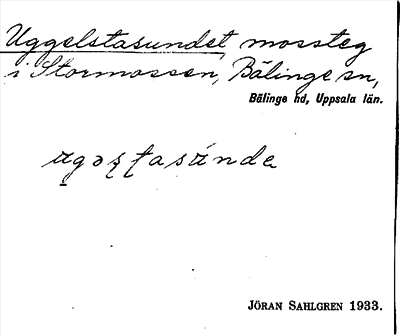 Uggelstasundet, mossteg
i Stormossen, Bälinge sn,
Bälinge hd, Uppsala län.
JÖRAN SAHLGREN 1933.